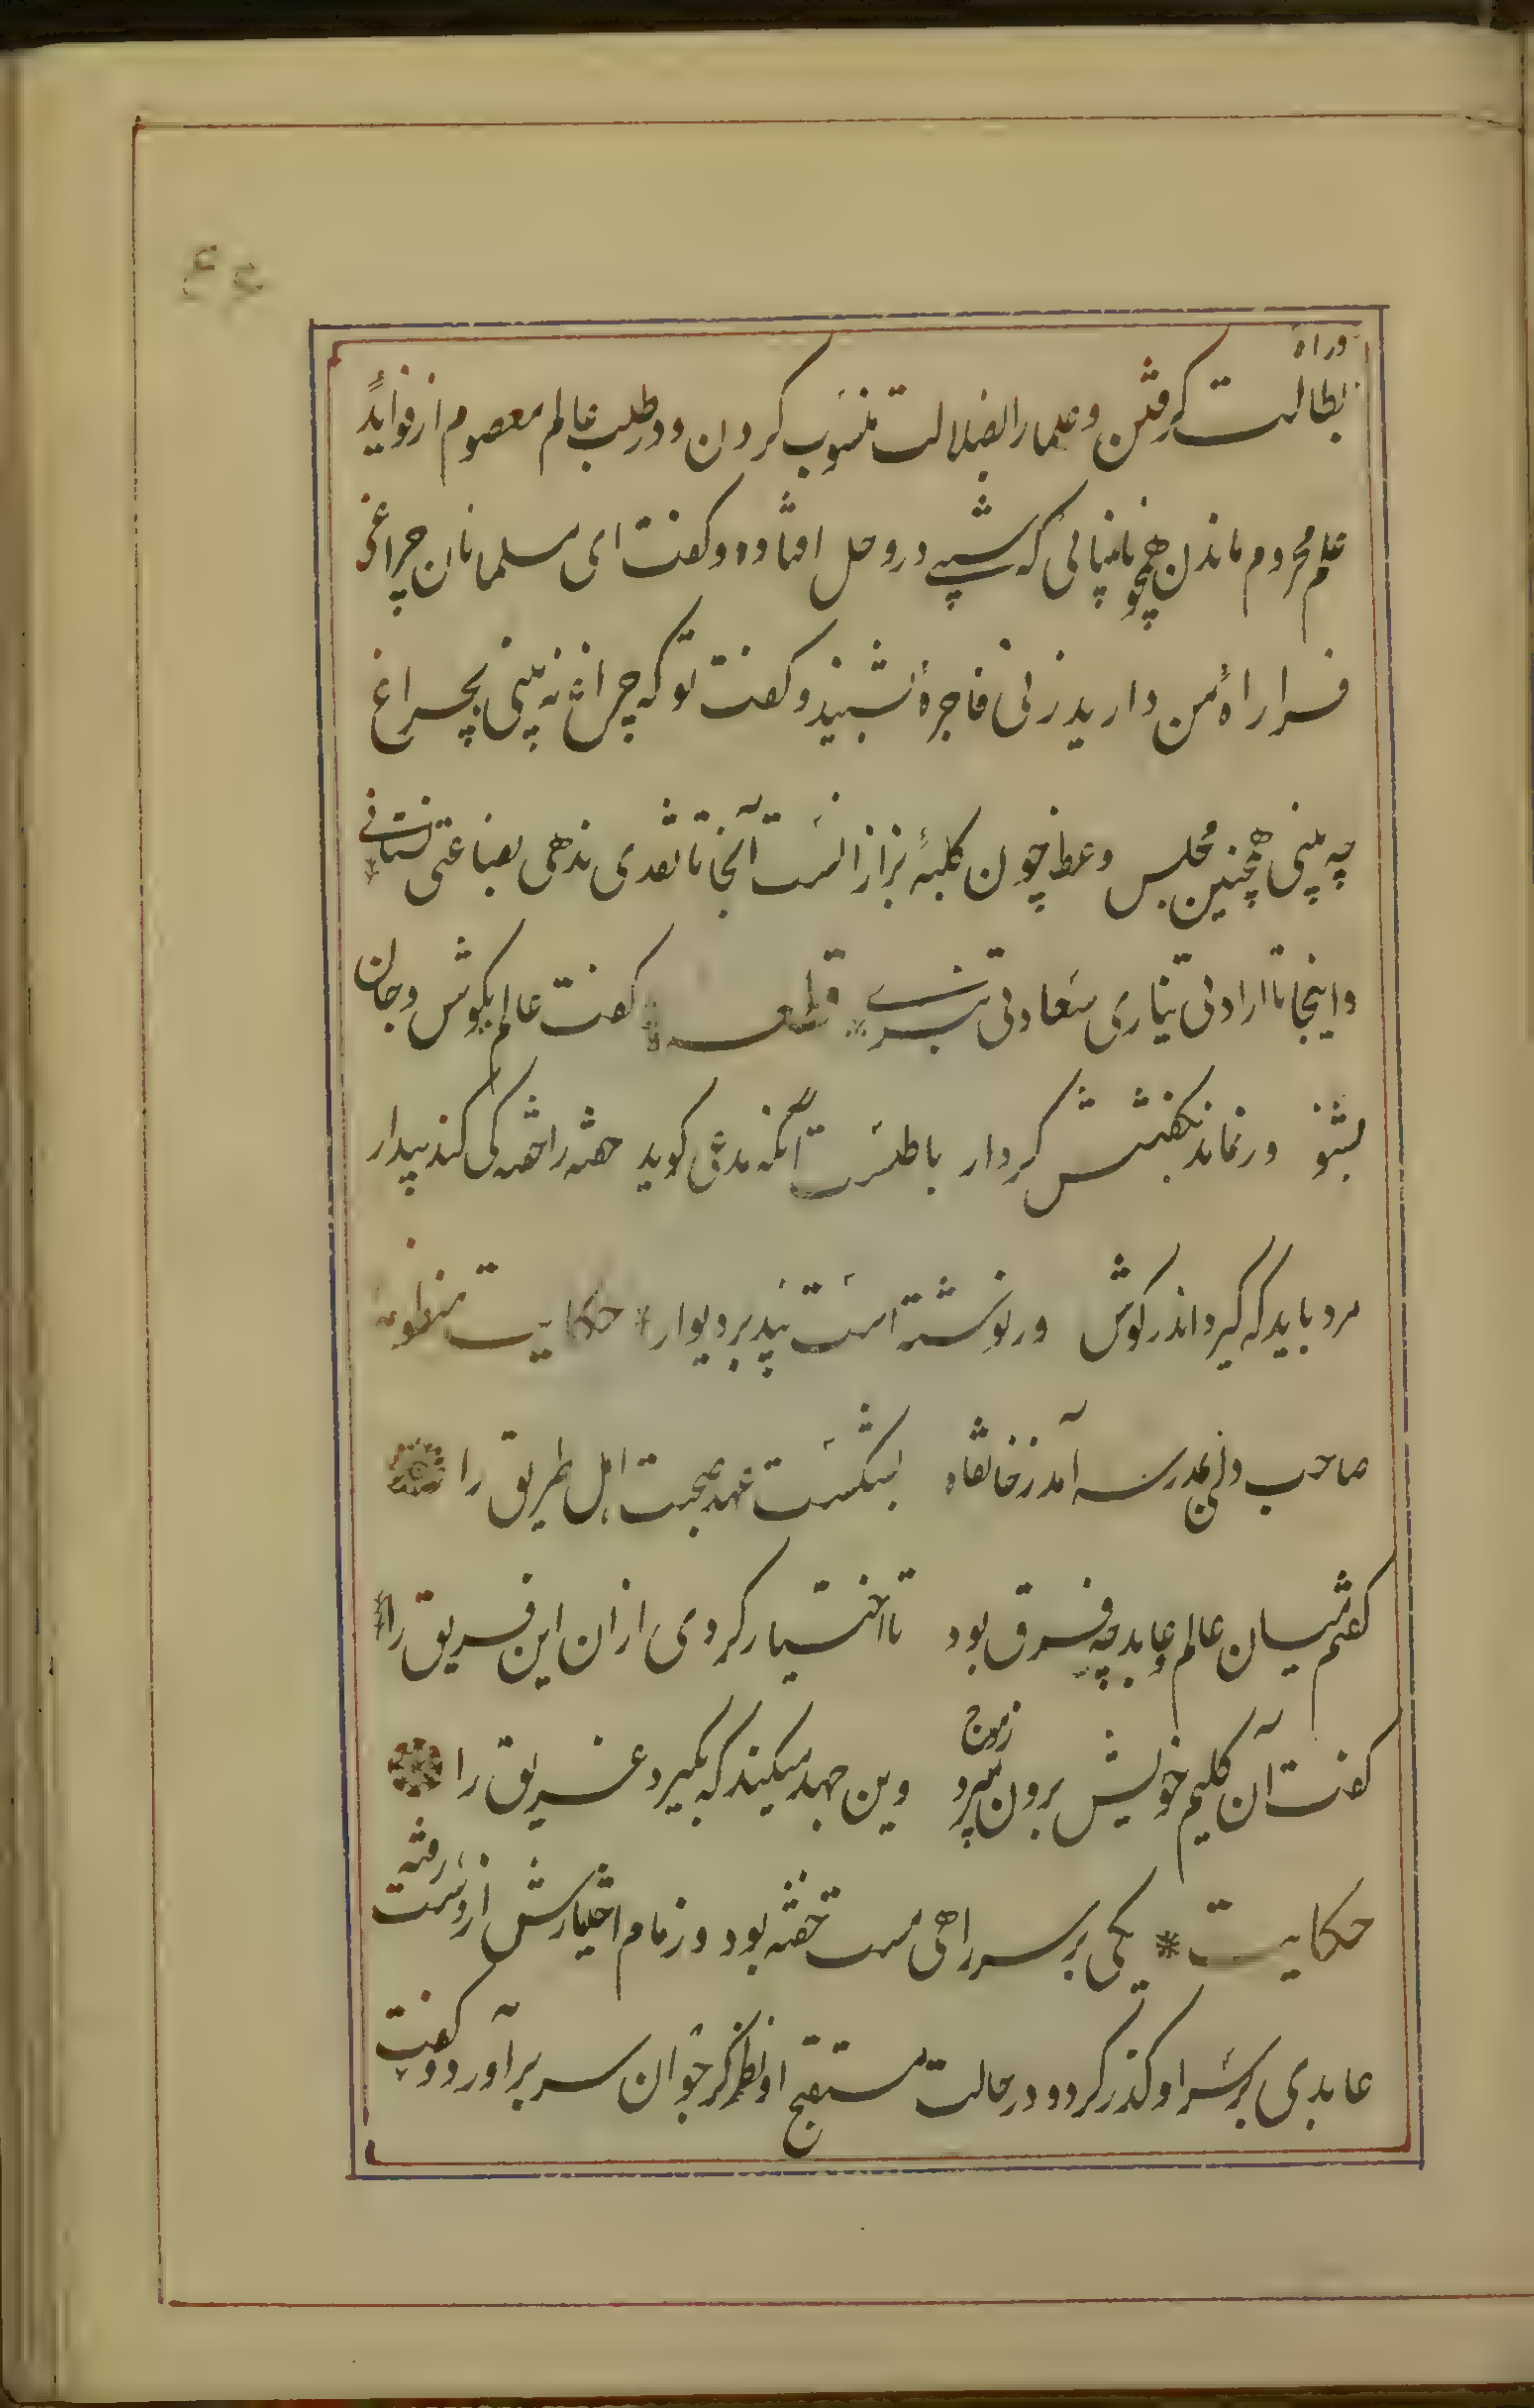 و راه
بطالت گرفتن و علما را بضلالت منسوب کردن و در طلب عالم معصوم از فواید
علم محروم ماندن همچو نابینائی که شبی در وحل افتاده و کفت ای مسلمانان چراغی
فرا راه من دارید زنی فاجره بشنید و کفت تو که چراغ نه بینی بچراغ
چه بینی همچنین مجلس وعظ چون کلبهٔ بزازانست آنجا تا نقدی ندهی بضاعتی نستانی
و اینجا تا ارادتی نیاری سعادتی نبری * قطعه * کفت عالم بکوش و جان
بشنو ور نماند بکفتنش کردار باطلست آنکه مدعی کوید خفته را خفته کی کند بیدار
مرد باید که کیرد اندر کوش ور نوشته است پند بر دیوار * حکایت منظومه
صاحب دلی بمدرسه آمد ز خانقاه بشکست عهد صحبت اهل طریق را
کفتم میان عالم و عابد چه فرق بود تا اختیار کردی ازان این فریق را
کفت آن کلیم خویش برون میبرد ز موج وین جهد میکند که بکیرد غریق را
حکایت * یکی بر سر راهی مست خفته بود و زمام اختیارش از دست رفته
عابدی بر سر او کذر کرد و در حالت مستقبح او نظر کرد جوان سر برآورد و کفت